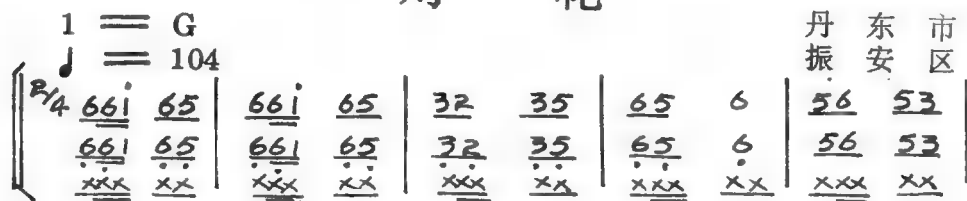 1 = G
♩ = 104
丹东市
振安区
2/4 661̇ 65 | 661̇ 65 | 32 35 | 65 6 | 56 53 |
661 65 | 661 65 | 32 35 | 65 6 | 56 53 |
xxx xx | xxx xx | xxx xx | xxx xx | xxx xx |